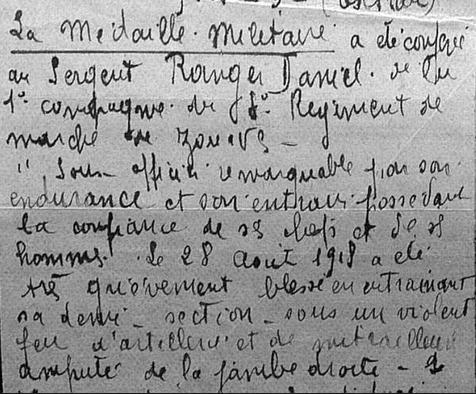 (extrait)
La Médaille Militaire a été conféré
au Sergent Ranger Daniel. de la
1° compagnie. du 8° Regiment de
marche de Zouaves -
" Sous-officier remarquable par son
endurance et son entrain possédant
la confiance de ses chefs et de ses
hommes. Le 28 Août 1918 a été
très grièvement blessé en entrainant
sa demi-section sous un violent
feu d'artillerie et de mitrailleuses
amputé de la jambe droite -